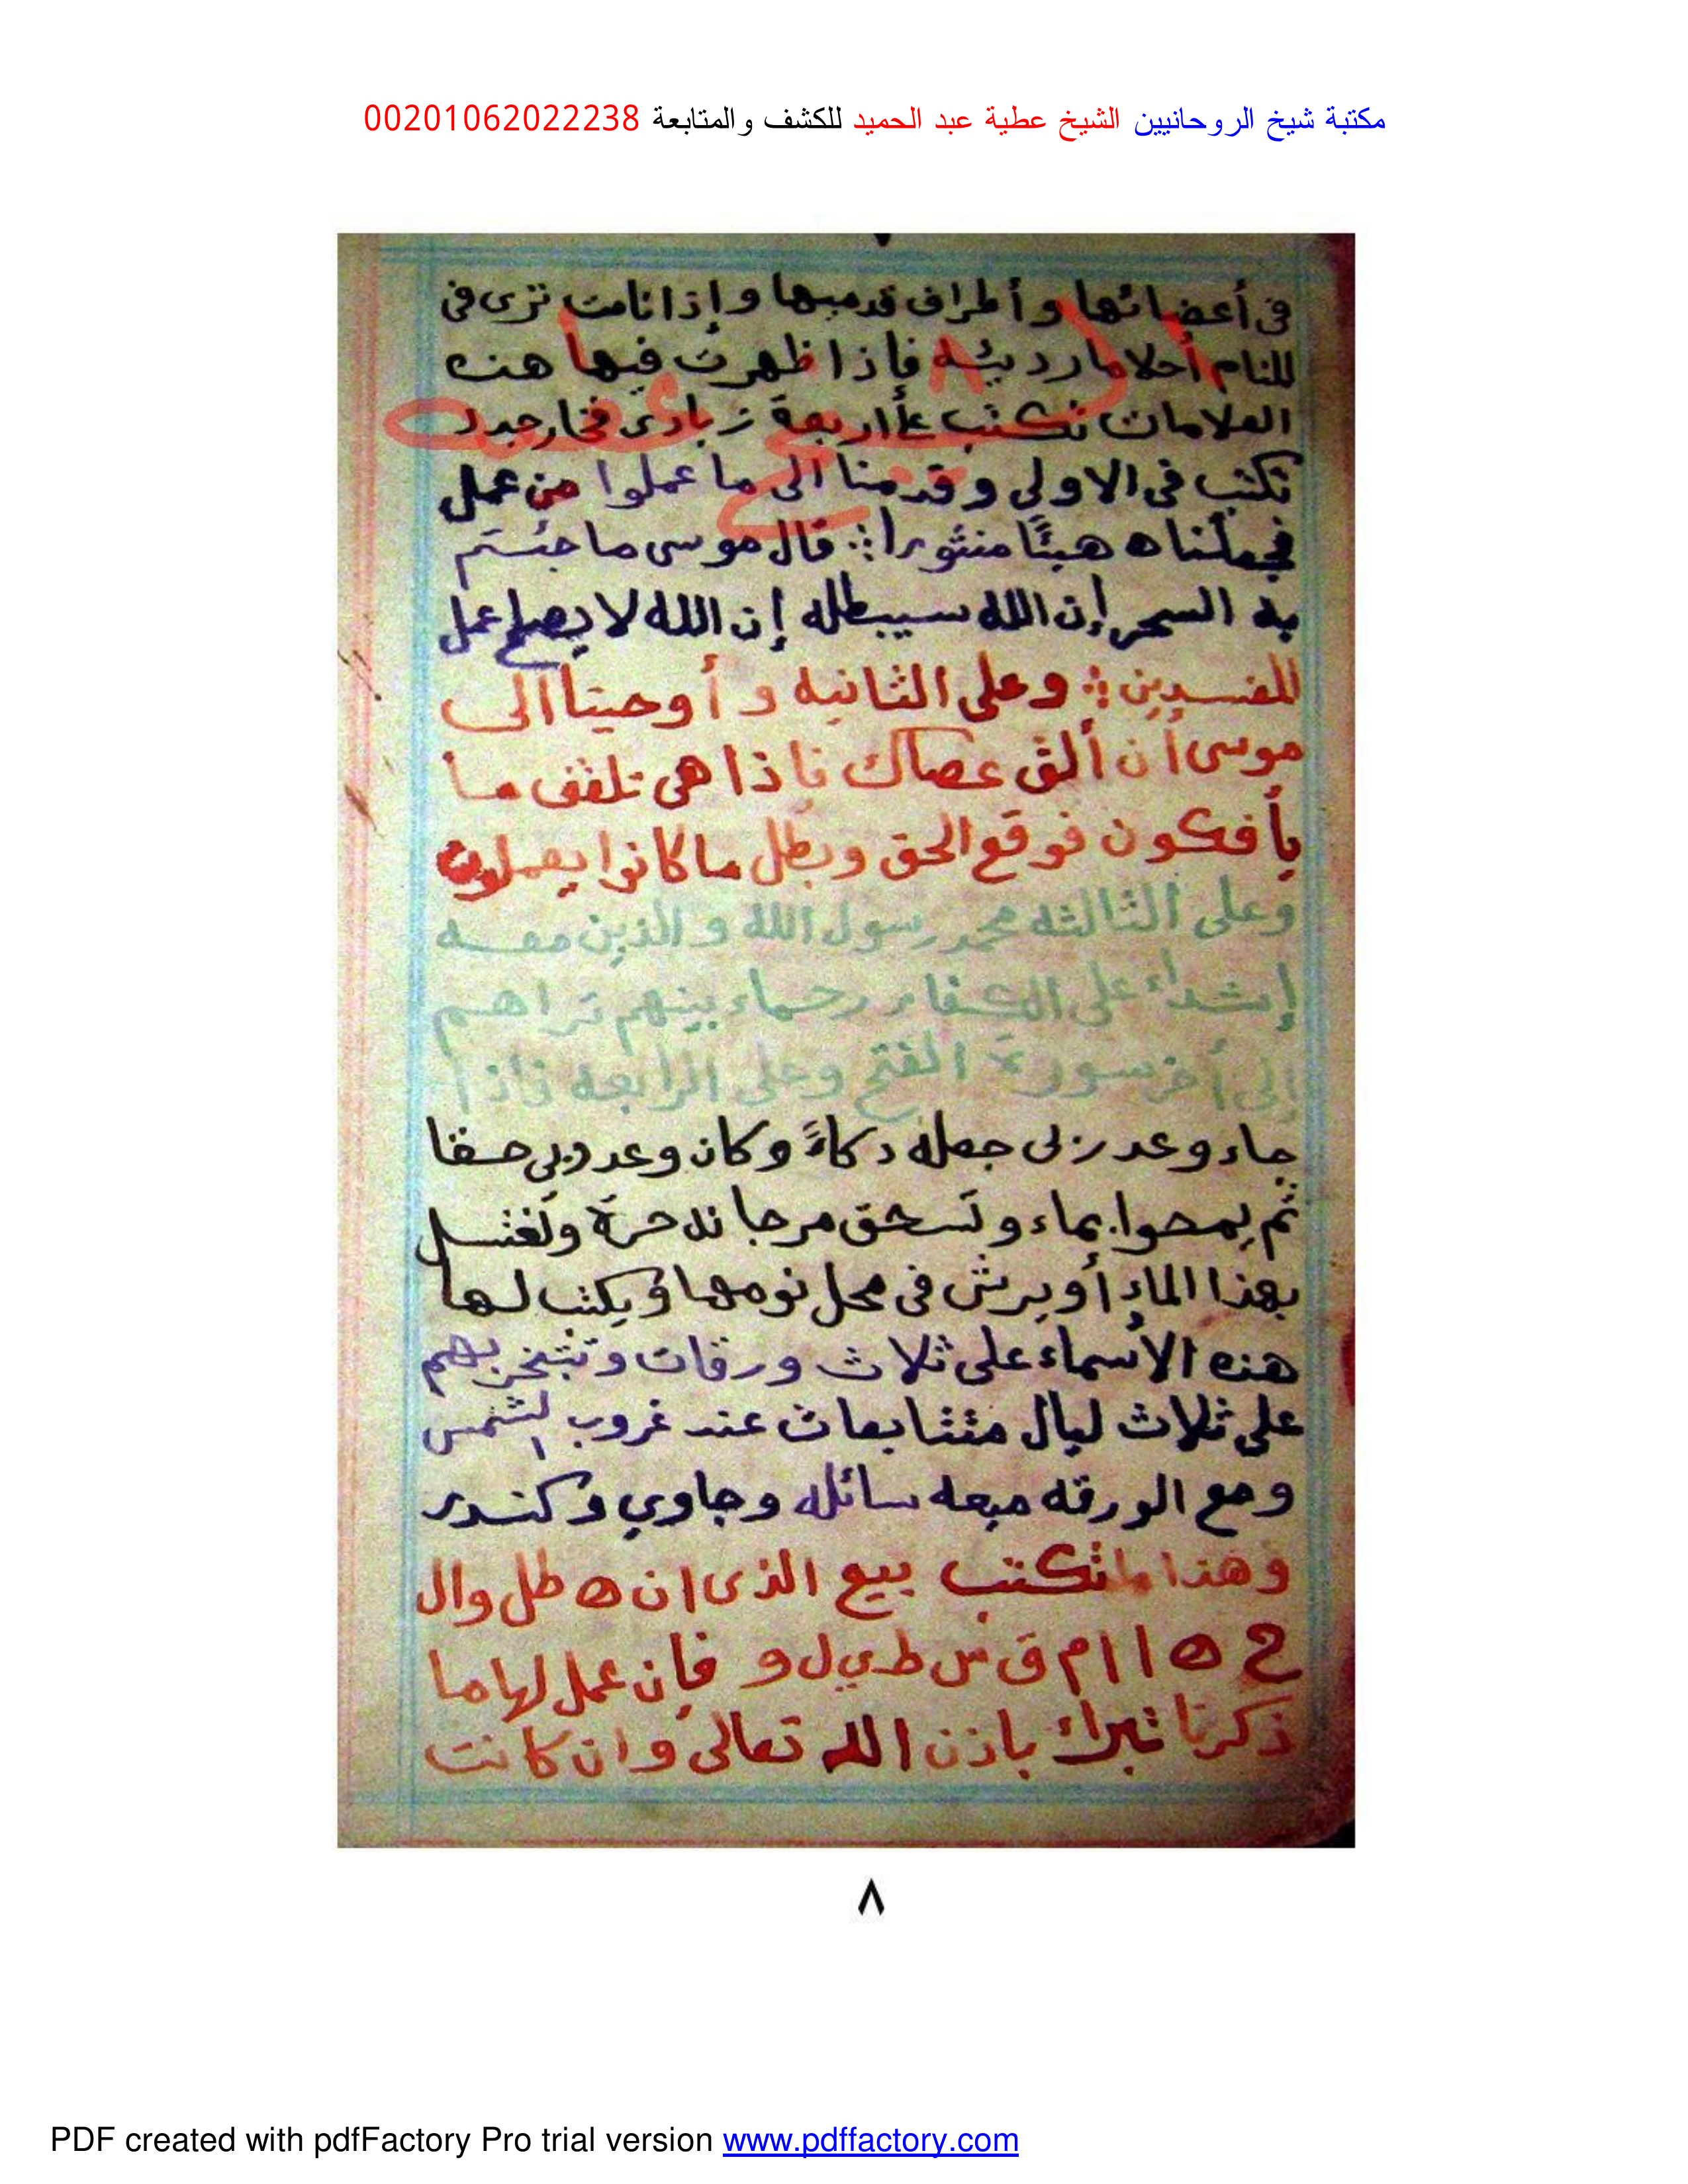 مكتبة شيخ الروحانيين الشيخ عطية عبد الحميد للكشف والمتابعة 00201062022238
في أعضائها وأطراف قدميها وإذا نامت ترى في
المنام أحلاما رديئه فإذا ظهرت فيها هذه
العلامات تكتب على أربعة زبادى فخار جديد
تكتب في الاولى وقدمنا الى ما عملوا من عمل
فجعلناه هبئًا منثورا ؞ قال موسى ما جئتم
به السحر إن الله سيبطله إن الله لا يصلح عمل
المفسدين ؞ وعلى الثانيه و أوحينا الى
موسى أن ألق عصاك فاذا هى تلقف ما
يأفكون فوقع الحق وبطل ما كانوا يعملون
وعلى الثالثه محمد رسول الله والذين معه
إشداء على الكفار رحماء بينهم تراهم
إلى أخر سورة الفتح وعلى الرابعه فاذا
جاء وعد ربى جعله دكاءً وكان وعد ربى حقا
ثم يمحوا بماء وتسحق مرجانه حرة وتغتسل
بهذا الماء أو يرش في محل نومها ويكتب لها
هذه الأسماء على ثلاث ورقات وتتبخر بهم
على ثلاث ليال متتابعات عند غروب الشمس
ومع الورقه ميعه سائله وجاوي وكندر
وهذا ما تكتب بيع الذى ان ه طل وال
ح ه ا ا م ق س ط ي ل و فإن عمل لها ما
ذكرنا تبرك باذن الله تعالى وان كانت
٨
PDF created with pdfFactory Pro trial version www.pdffactory.com